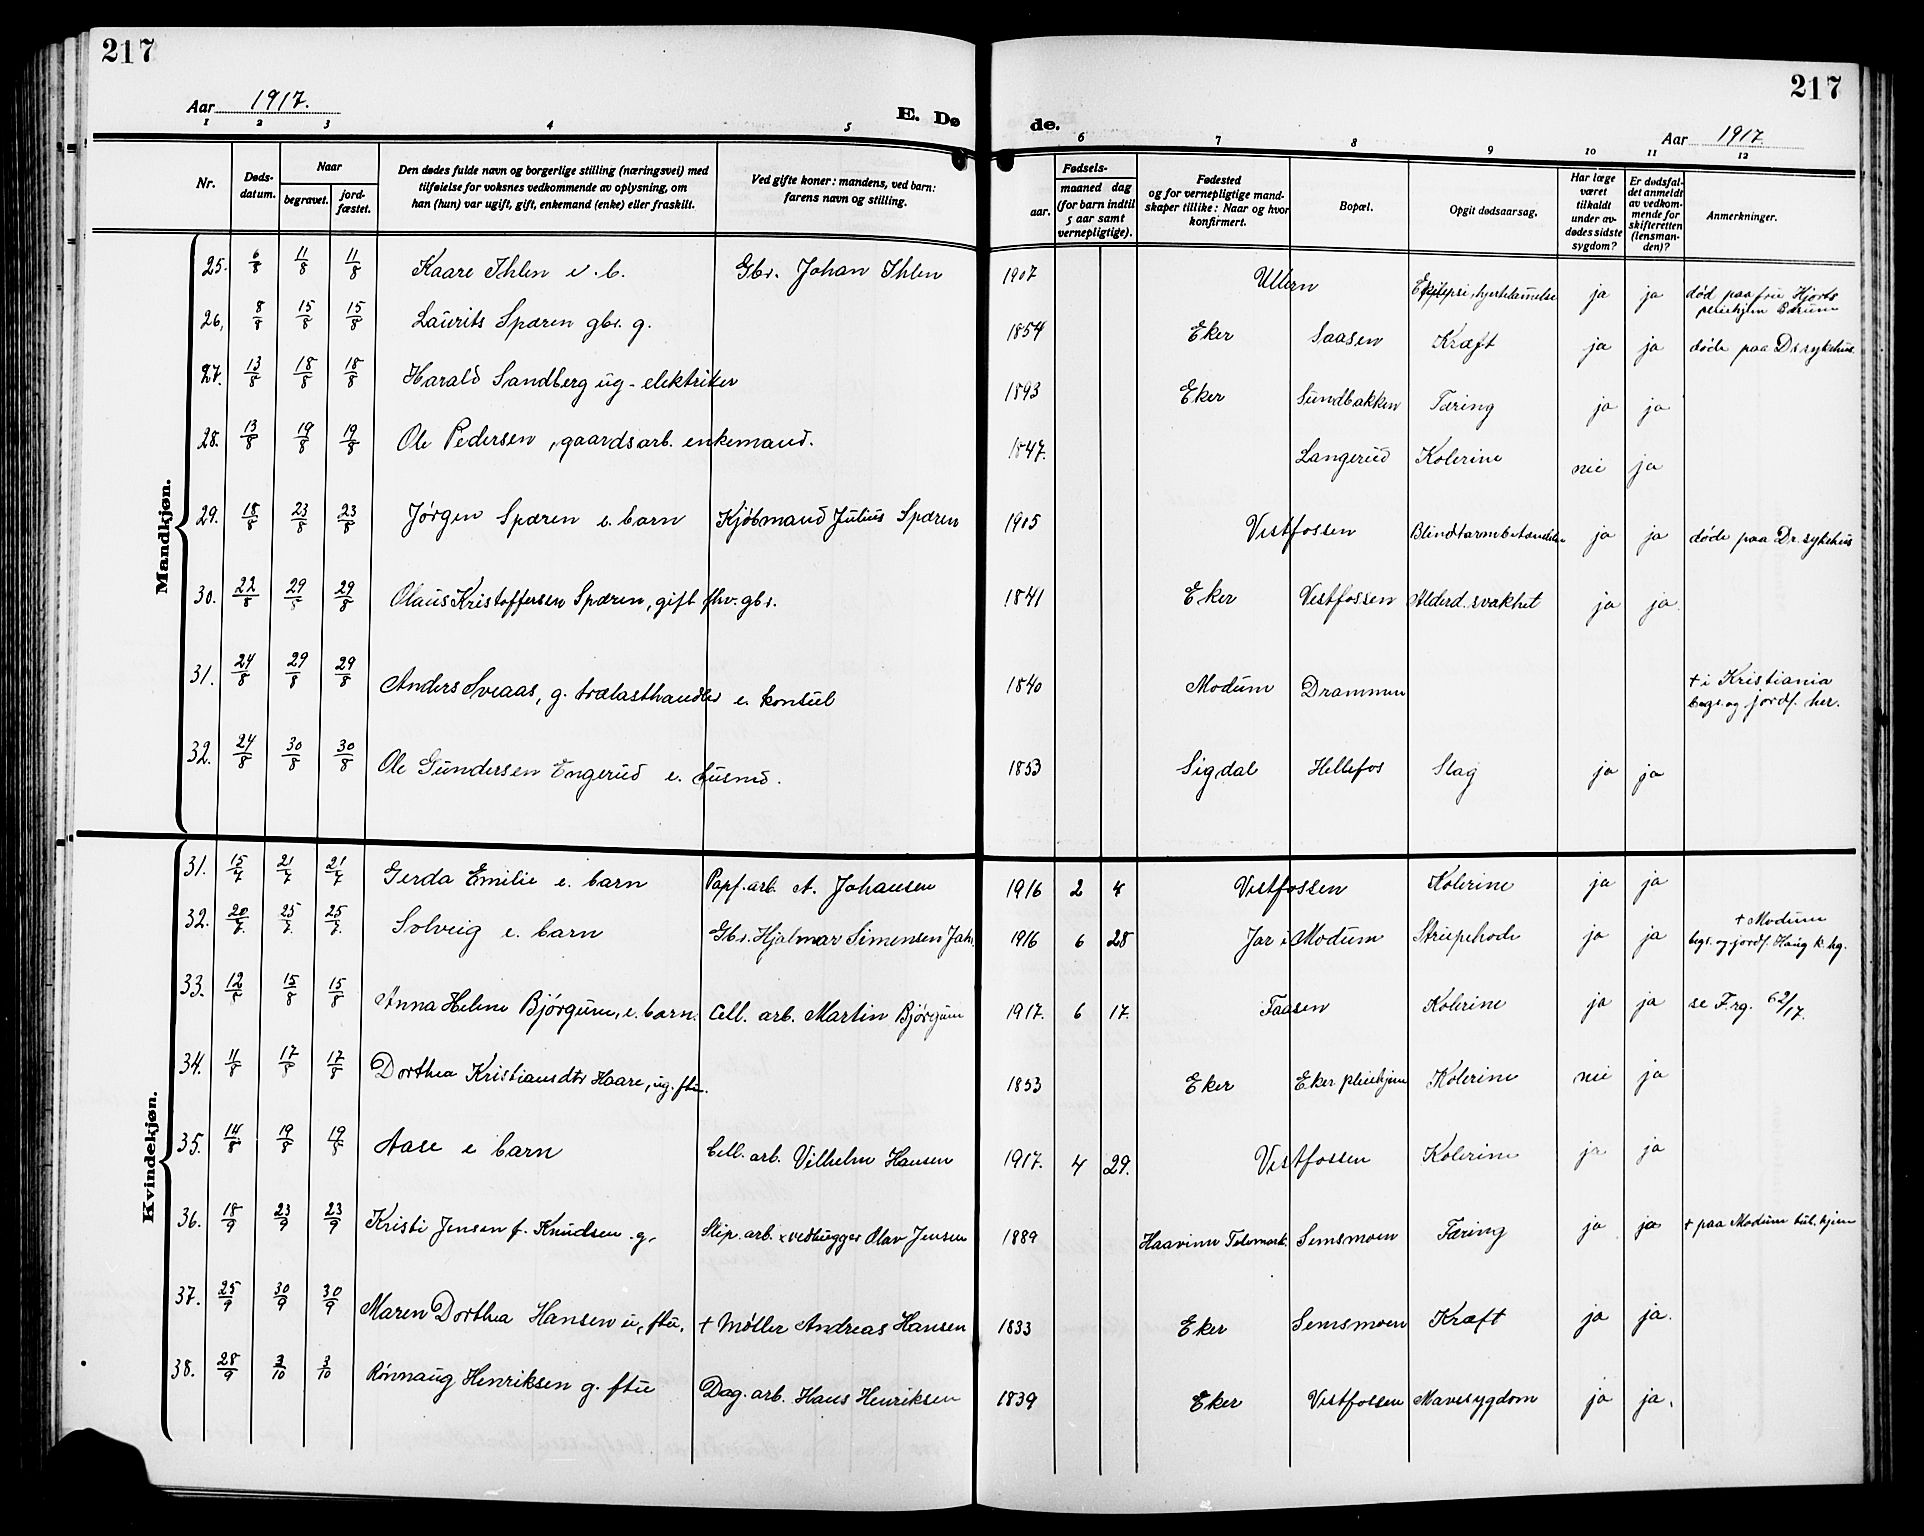 217
217
Aar 1917.
E. Dø
de.
Aar 1917
1 2 3 4 5 6 7 8 9 10 11 12
Nr.
Døds-
datum.
Naar
begravet.
jord-
fæstet.
Den dødes fulde navn og borgerlige stilling (næringsvei) med
tilføielse for voksnes vedkommende av oplysning, om
han (hun) var ugift, gift, enkemand (enke) eller fraskilt.
Ved gifte koner: mandens, ved barn:
farens navn og stilling.
Fødsels-
aar.
maaned dag
(for barn indtil
5 aar samt
vernepligtige).
Fødested
og for vernepligtige mand-
skaper tillike: Naar og hvor
konfirmert.
Bopæl.
Opgit dødsaarsag.
Har læge
været
tilkaldt
under av-
dødes sidste
sygdom?
Er dødsfal-
det anmeldt
av vedkom-
mende for
skifteretten
(lensman-
den)?
Anmerkninger.
Mandkjøn.
25. 6/8 11/8 11/8 Kaare Ihlen e. b. Gbr. Johan Ihlen 1907 Ullern Epilepsi, hjertelammelse ja ja død paa fru Hjorts
pleiehjem Bærum
26, 8/8 15/8 15/8 Laurits Spæren gbr. g. 1854 Eker Saasen Kræft ja ja døde paa Dr. sykehus.
27. 13/8 18/8 18/8 Harald Sandberg ug - elektriker 1893 Eker Sundbakken Tæring ja ja
28. 13/8 19/8 19/8 Ole Pedersen, gaardsarb. enkemand. 1847. Langerud Kolerine nei ja
29. 18/8 23/8 23/8 Jørgen Spæren e. barn Kjøbmand Julius Spæren 1905 Vestfossen Blindtarmbetændelse ja ja døde paa Dr. sykehus
30. 22/8 29/8 29/8 Olaus Kristoffersen Spæren, gift fhv. gbr. 1841 Eker Vestfossen Alderd. svakhet ja ja.
31. 24/8 29/8 29/8 Anders Sveaas, g. trælasthandler e. konsul 1840 Modum Drammen + i Kristiania
begr. og jordf. her.
32. 24/8 30/8 30/8 Ole Gundersen Engerud e. husmd. 1853 Sigdal Hellefos Slag ja ja
Kvindekjøn.
31. 15/7 21/7 21/7 Gerda Emilie e. barn Papf. arb. A. Johansen 1916 2 4 Vestfossen Kolerine ja ja
32. 20/7. 25/7. 25/7. Solveig e. barn Gbr. Hjalmar Simensen Jahr 1916 6 28 Jar i Modum Strupehode ja ja + Modum
begr. og jordf. Haug k. kg.
33. 12/8 15/8 15/8 Anna Helene Bjørgum, e. barn. Cell. arb. Martin Bjørgum 1917. 6 17. Faasen Kolerine ja ja se F. rg. 62/17.
34. 11/8 17/8 17/8 Dorthea Kristiansdtr Haare, ug. ftu. 1853 Eker Eker pleiehjem Kolerine nei ja
35. 14/8 19/8 19/8 Aase e barn Cell. arb. Vilhelm Hansen 1917. 4 29. Vestfossen Kolerine ja ja
36. 18/9 23/9 23/9 Kristi Jensen f. Knudsen. g, Slip. arb. x vedhugger Olav Jensen 1889 Haavinn Telemark. Semsmoen Tæring ja ja + paa Modum tub. hjem
37. 25/9 30/9 30/9 Maren Dorthea Hansen u, ftu. + Møller Andreas Hansen 1833 Eker Semsmoen Kræft ja ja.
38. 28/9 3/10 3/10 Rønnaug Henriksen g. ftu Dag. arb. Hans Henriksen 1839 Eker Vestfossen Mavesygdom ja ja.